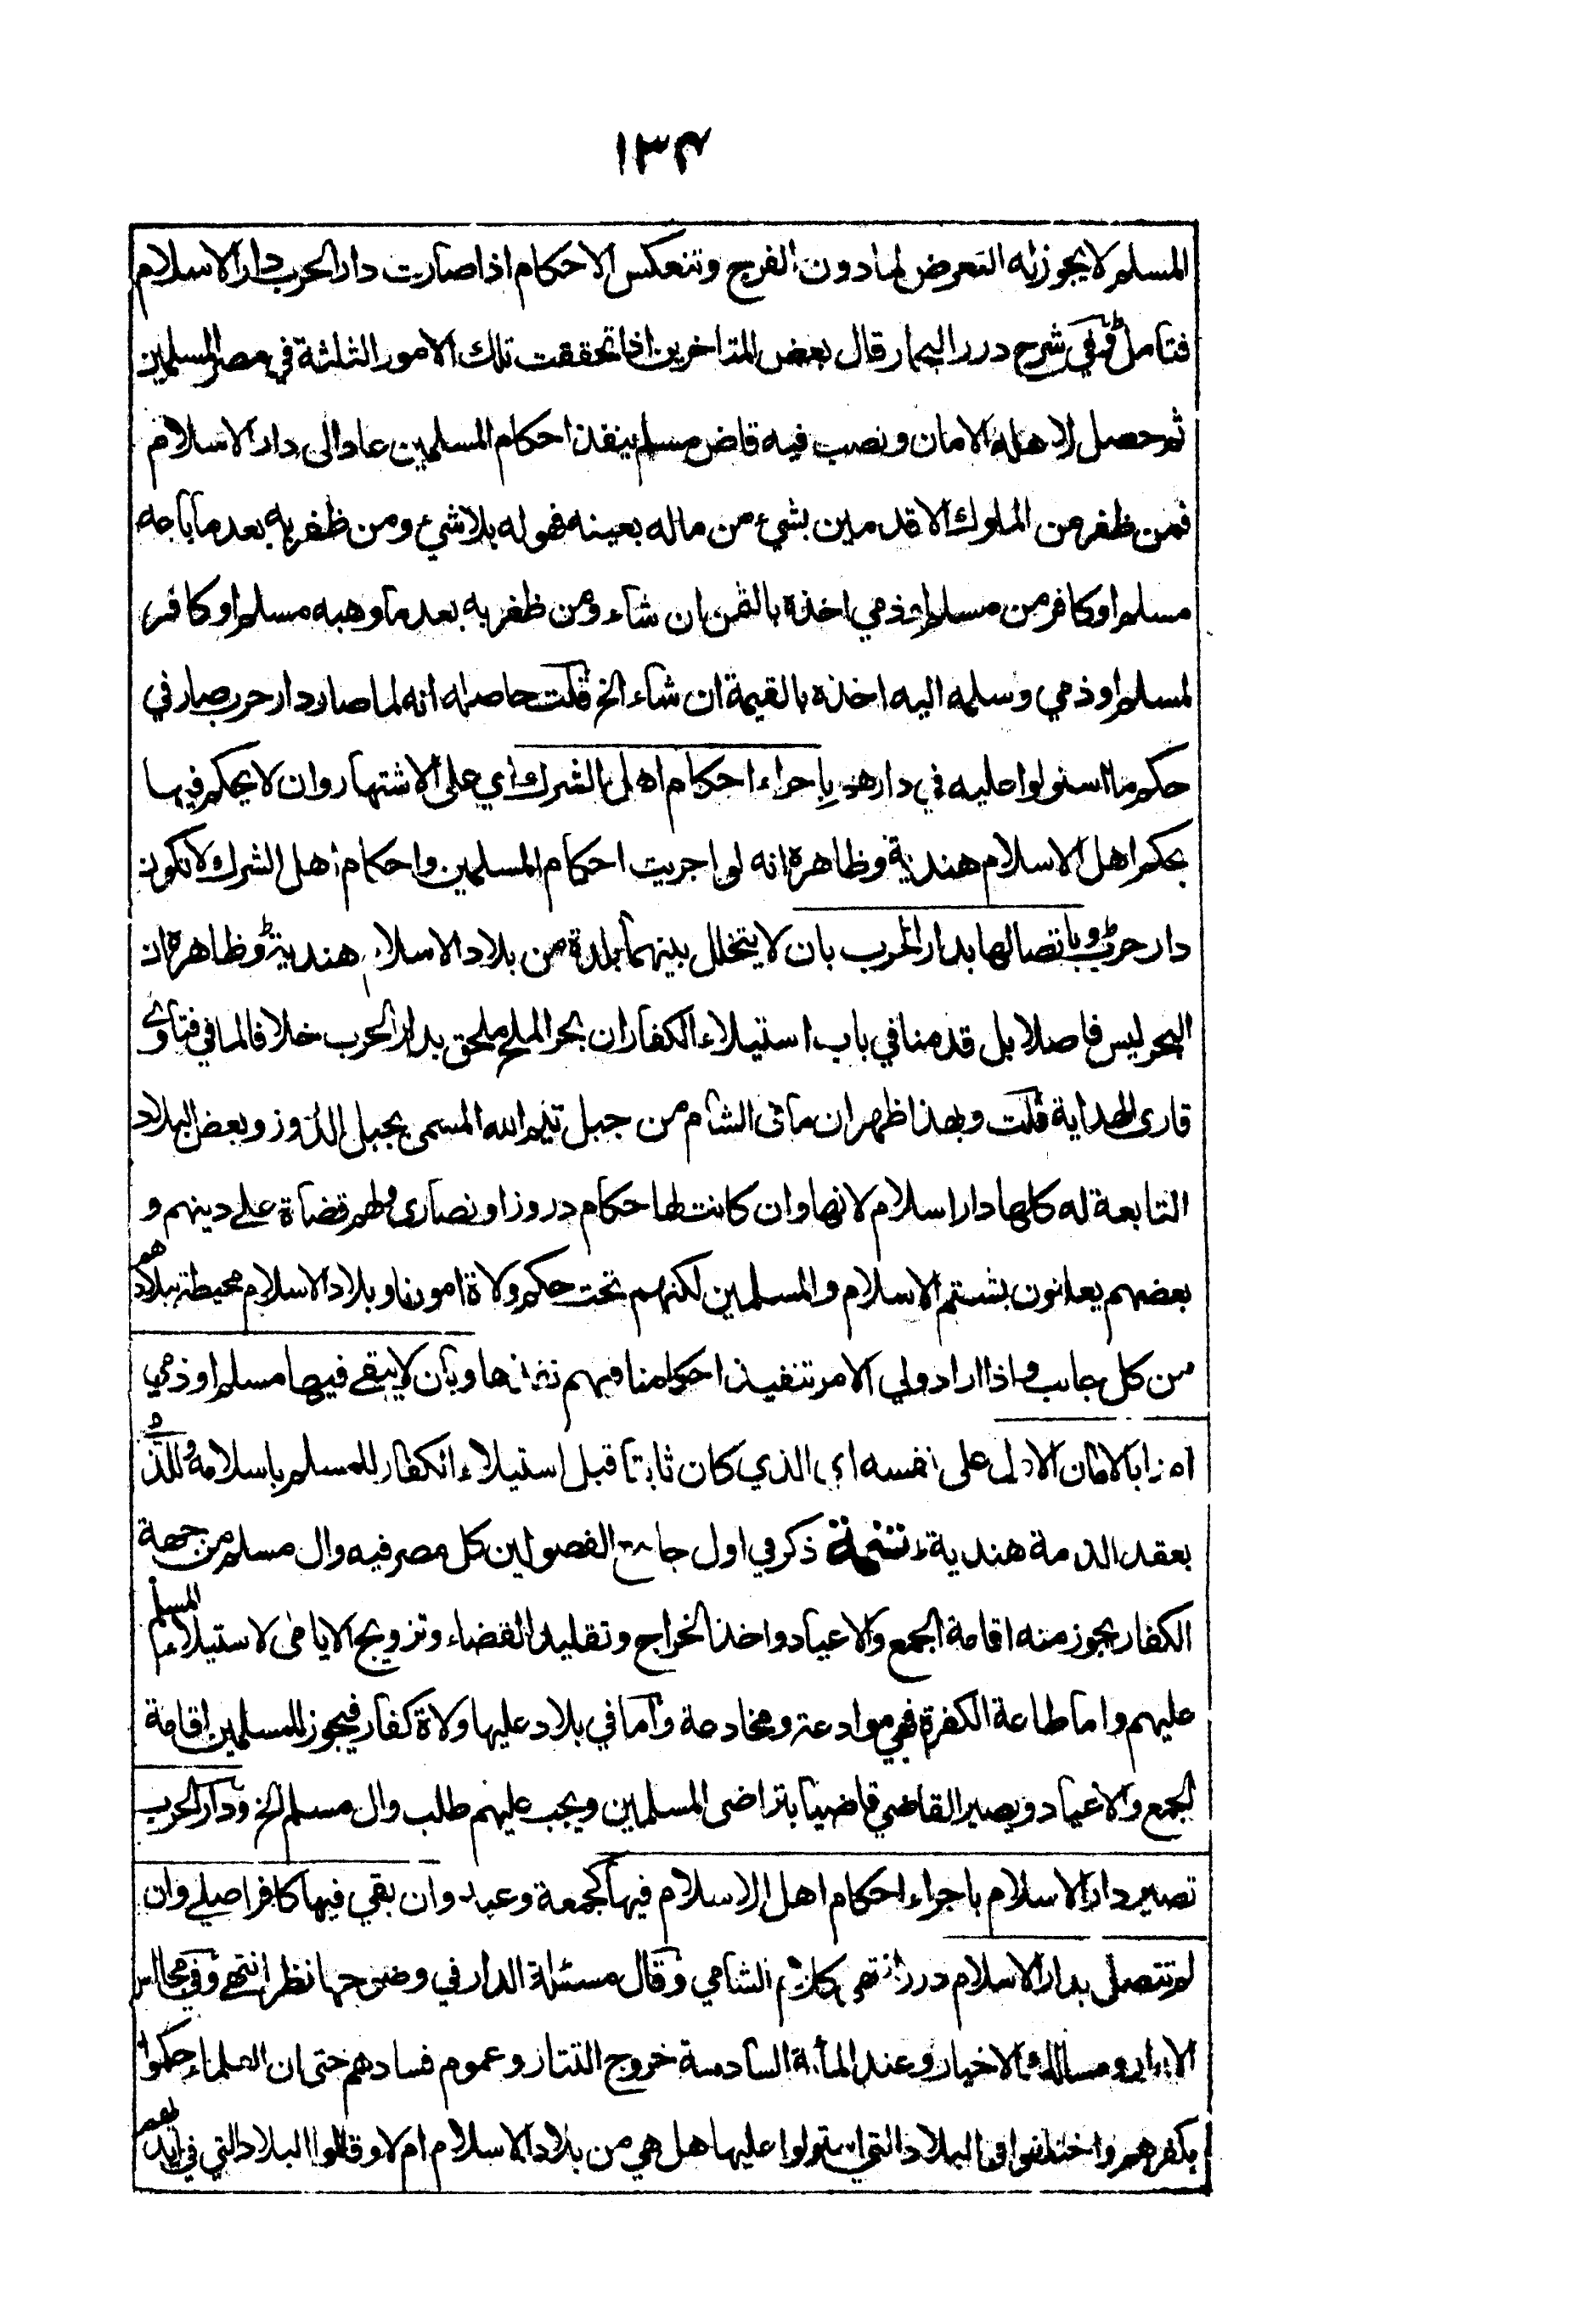 ١٣٤
المسلم لا يجوز له التعرض لما دون الفرج وتنعكس الاحكام اذا صارت دار الحرب دار الاسلام
فتامل وفي شرح درر البحار قال بعض المتاخرين اذا تحققت تلك الامور الثلثة في مصر المسلمين
ثم حصل لاهله الامان ونصب فيه قاض مسلم ينفذ احكام المسلمين عاد الى دار الاسلام
فمن ظفر من الملوك الاقدمين بشيء من ماله بعينه فهو له بلا شيء ومن ظفر به بعد ما باعه
مسلم او كافر من مسلم او ذمي اخذه بالثمن ان شاء ومن ظفر به بعد ما وهبه مسلم او كافر
لمسلم او ذمي وسلمه اليه اخذه بالقيمة ان شاء الخ قلت حاصله انه لما صار دار حرب صار في
حكم ما استولوا عليه في دارهم باجراء احكام اهل الشرك اي على الاشتهار وان لا يحكم فيها
بحكم اهل الاسلام هندية وظاهره انه لو اجريت احكام المسلمين واحكام اهل الشرك لا تكون
دار حرب وباتصالها بدار الحرب بان لا يتخلل بينهما بلدة من بلاد الاسلام هندية وظاهره ان
البحر ليس فاصلا بل قدمنا في باب استيلاء الكفار ان بحر الملح ملحق بدار الحرب خلافا لما في فتاوى
قارى الهداية قلت وبهذا ظهر ان ما في الشام من جبل تيم الله المسمى بجبل الدروز وبعض البلاد
التابعة له كلها دار اسلام لانها وان كانت لها حكام دروز او نصارى ولهم قضاة على دينهم و
بعضهم يعلنون بشتم الاسلام والمسلمين لكنهم تحت حكم ولاة امورنا وبلاد الاسلام محيطة ببلادهم
من كل جانب واذا اراد ولي الامر تنفيذ احكامنا فيهم نفذها وبان لا يبقى فيها مسلم او ذمي
امنا بالامان الاول على نفسه اي الذي كان ثابتا قبل استيلاء الكفار للمسلم باسلامه وللذمي
بعقد الذمة هندية تتمة ذكر في اول جامع الفصولين كل مصر فيه وال مسلم من جهة
الكفار يجوز منه اقامة الجمع والاعياد واخذ الخراج وتقليد القضاء وتزويج الايامى لاستيلاء المسلم
عليهم واما طاعة الكفرة فهي موادعة ومخادعة واما في بلاد عليها ولاة كفار فيجوز للمسلمين اقامة
الجمع والاعياد ويصير القاضي قاضيا بتراضى المسلمين ويجب عليهم طلب وال مسلم الخ ودار الحرب
تصير دار الاسلام باجراء احكام اهل الاسلام فيها كجمعة وعيد وان بقي فيها كافر اصلي وان
لم تتصل بدار الاسلام درر انتهى كلام الشامي وقال مسئلة الدار في وضوحها نظر انتهى وفي مجالس
الابرار ومسالك الاخيار وعند المأة السادسة خروج التتار وعموم فسادهم حتى ان العلماء حكموا
بكفرهم واختلفوا في البلاد التي استولوا عليها هل هي من بلاد الاسلام ام لا وقالوا البلاد التي في ايديهم